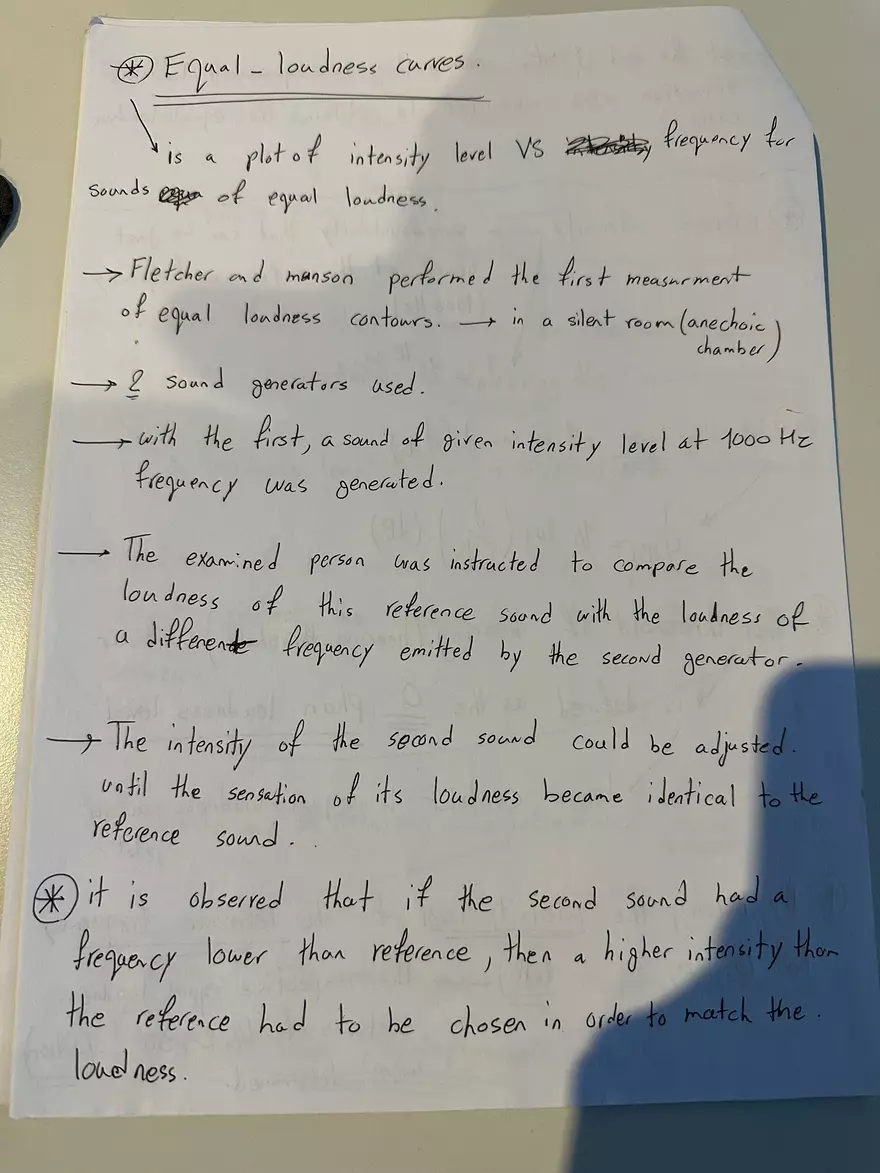 ⊛ Equal - loudness curves.
is a plot of intensity level VS frequency for
sounds of equal loudness.
→ Fletcher and manson performed the first measurment
of equal loudness contours. → in a silent room (anechoic
chamber)
→ 2 sound generators used.
→ with the first, a sound of given intensity level at 1000 Hz
frequency was generated.
→ The examined person was instructed to compare the
loudness of this reference sound with the loudness of
a different frequency emitted by the second generator.
→ The intensity of the second sound could be adjusted.
until the sensation of its loudness became identical to the
reference sound.
⊛ it is observed that if the second sound had a
frequency lower than reference, then a higher intensity than
the reference had to be chosen in order to match the.
loudness.